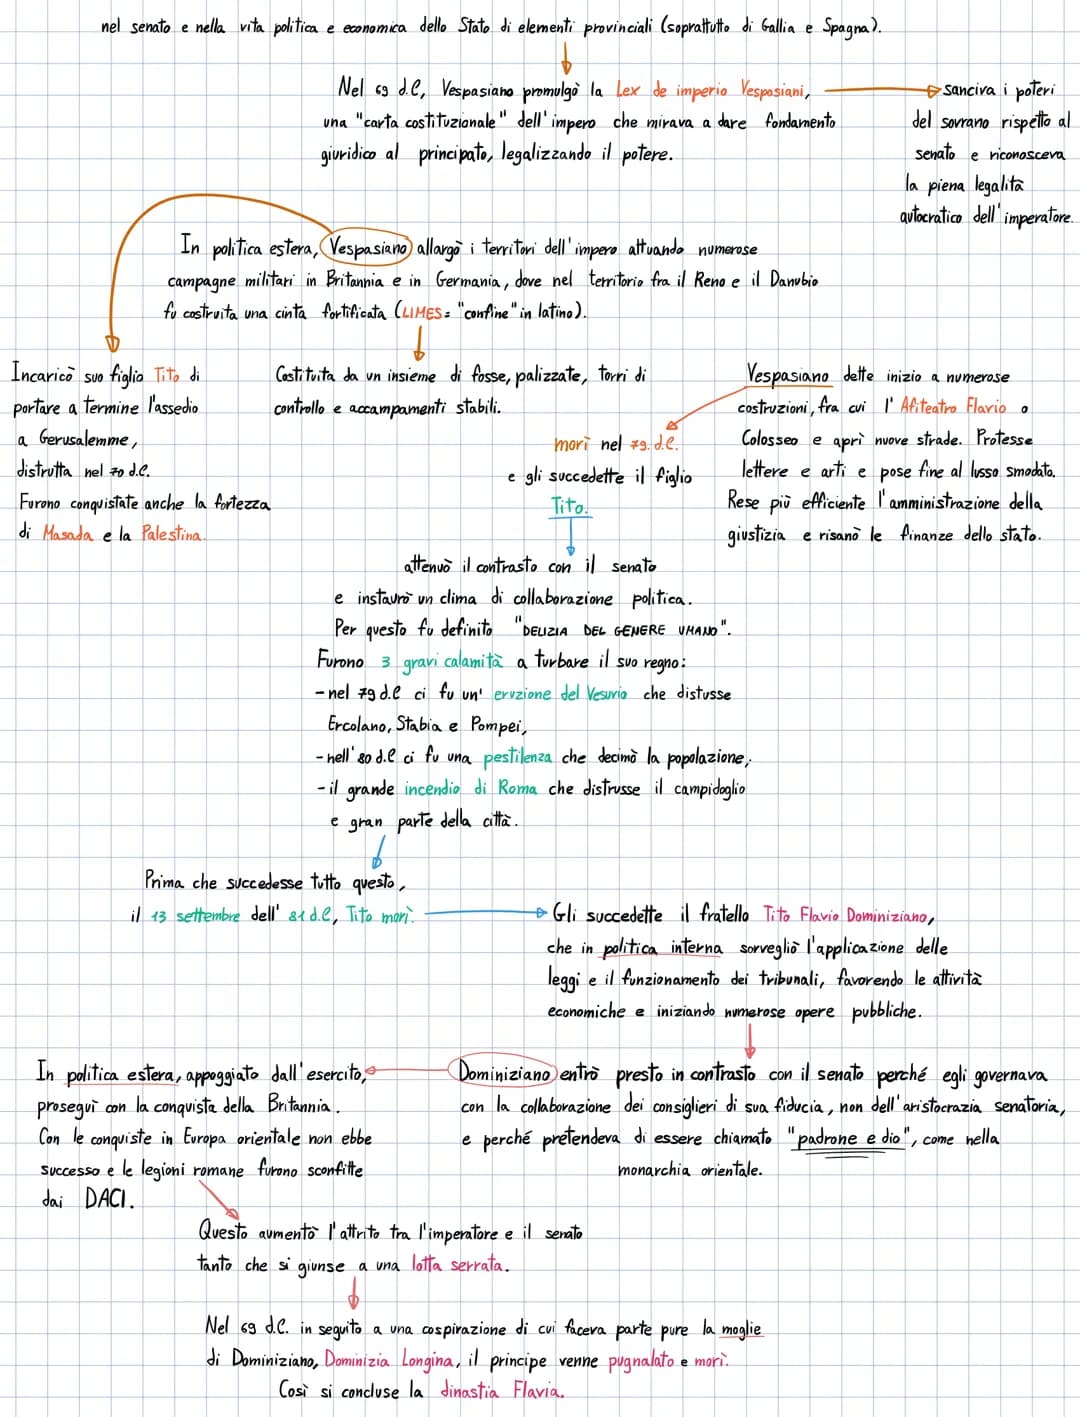 nel senato e nella vita politica e economica dello Stato di elementi provinciali (soprattutto di Gallia e Spagna).
Nel 69 d.C, Vespasiano promulgò la Lex de imperio Vespasiani,
una "carta costituzionale" dell'impero che mirava a dare fondamento
giuridico al principato, legalizzando il potere.
sanciva i poteri
del sovrano rispetto al
senato e riconosceva
la piena legalità
autocratico dell'imperatore.
In politica estera, Vespasiano allargò i territori dell'impero attuando numerose
campagne militari in Britannia e in Germania, dove nel territorio fra il Reno e il Danubio
fu costruita una cinta fortificata (LIMES= "confine" in latino).
Incaricò suo figlio Tito di
portare a termine l'assedio
a Gerusalemme,
distrutta nel 70 d.C.
Furono conquistate anche la fortezza
di Masada e la Palestina.
Costituita da un insieme di fosse, palizzate, torri di
controllo e accampamenti stabili.
Vespasiano dette inizio a numerose
costruzioni, fra cui l'Afiteatro Flavio o
Colosseo e aprì nuove strade. Protesse
lettere e arti e pose fine al lusso smodato.
Rese più efficiente l'amministrazione della
giustizia e risanò le finanze dello stato.
morì nel 79. d.C.
e gli succedette il figlio
Tito.
attenuò il contrasto con il senato
e instaurò un clima di collaborazione politica.
Per questo fu definito "DELIZIA DEL GENERE UMANO".
Furono 3 gravi calamità a turbare il suo regno:
- nel 79 d.C ci fu un' eruzione del Vesuvio che distusse
Ercolano, Stabia e Pompei,
- nell'80 d.C ci fu una pestilenza che decimò la popolazione,
- il grande incendio di Roma che distrusse il campidoglio
e gran parte della città.
Prima che succedesse tutto questo,
il 13 settembre dell' 81 d.C, Tito morì.
Gli succedette il fratello Tito Flavio Dominiziano,
che in politica interna sorvegliò l'applicazione delle
leggi e il funzionamento dei tribunali, favorendo le attività
economiche e iniziando numerose opere pubbliche.
Dominiziano entrò presto in contrasto con il senato perché egli governava
con la collaborazione dei consiglieri di sua fiducia, non dell'aristocrazia senatoria,
e perché pretendeva di essere chiamato "padrone e dio", come nella
monarchia orientale.
In politica estera, appoggiato dall'esercito,
proseguì con la conquista della Britannia.
Con le conquiste in Europa orientale non ebbe
successo e le legioni romane furono sconfitte
dai DACI.
Questo aumentò l'attrito tra l'imperatore e il senato
tanto che si giunse a una lotta serrata.
Nel 69 d.C. in seguito a una cospirazione di cui faceva parte pure la moglie
di Dominiziano, Dominizia Longina, il principe venne pugnalato e morì.
Così si concluse la dinastia Flavia.